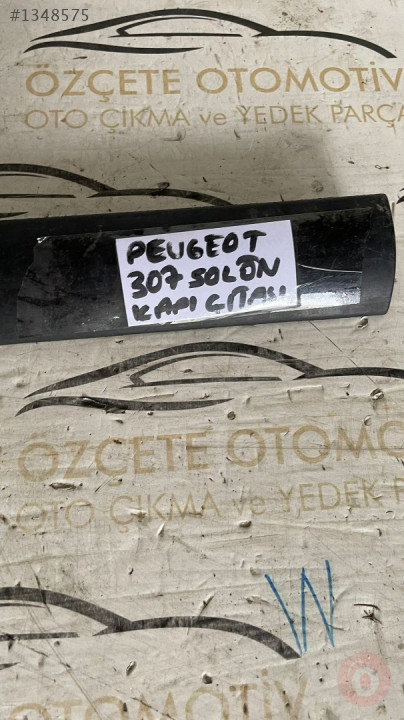 #1348575
ÖZÇETE OTOMOTİV
OTO ÇIKMA ve YEDEK PARÇA
PEUGEOT
307 SOL ÖN
KAPI ÇITASI
ÖZÇETE OTOMO
OTO ÇIKMA ve YEDEK P
W
OTOMOTİV